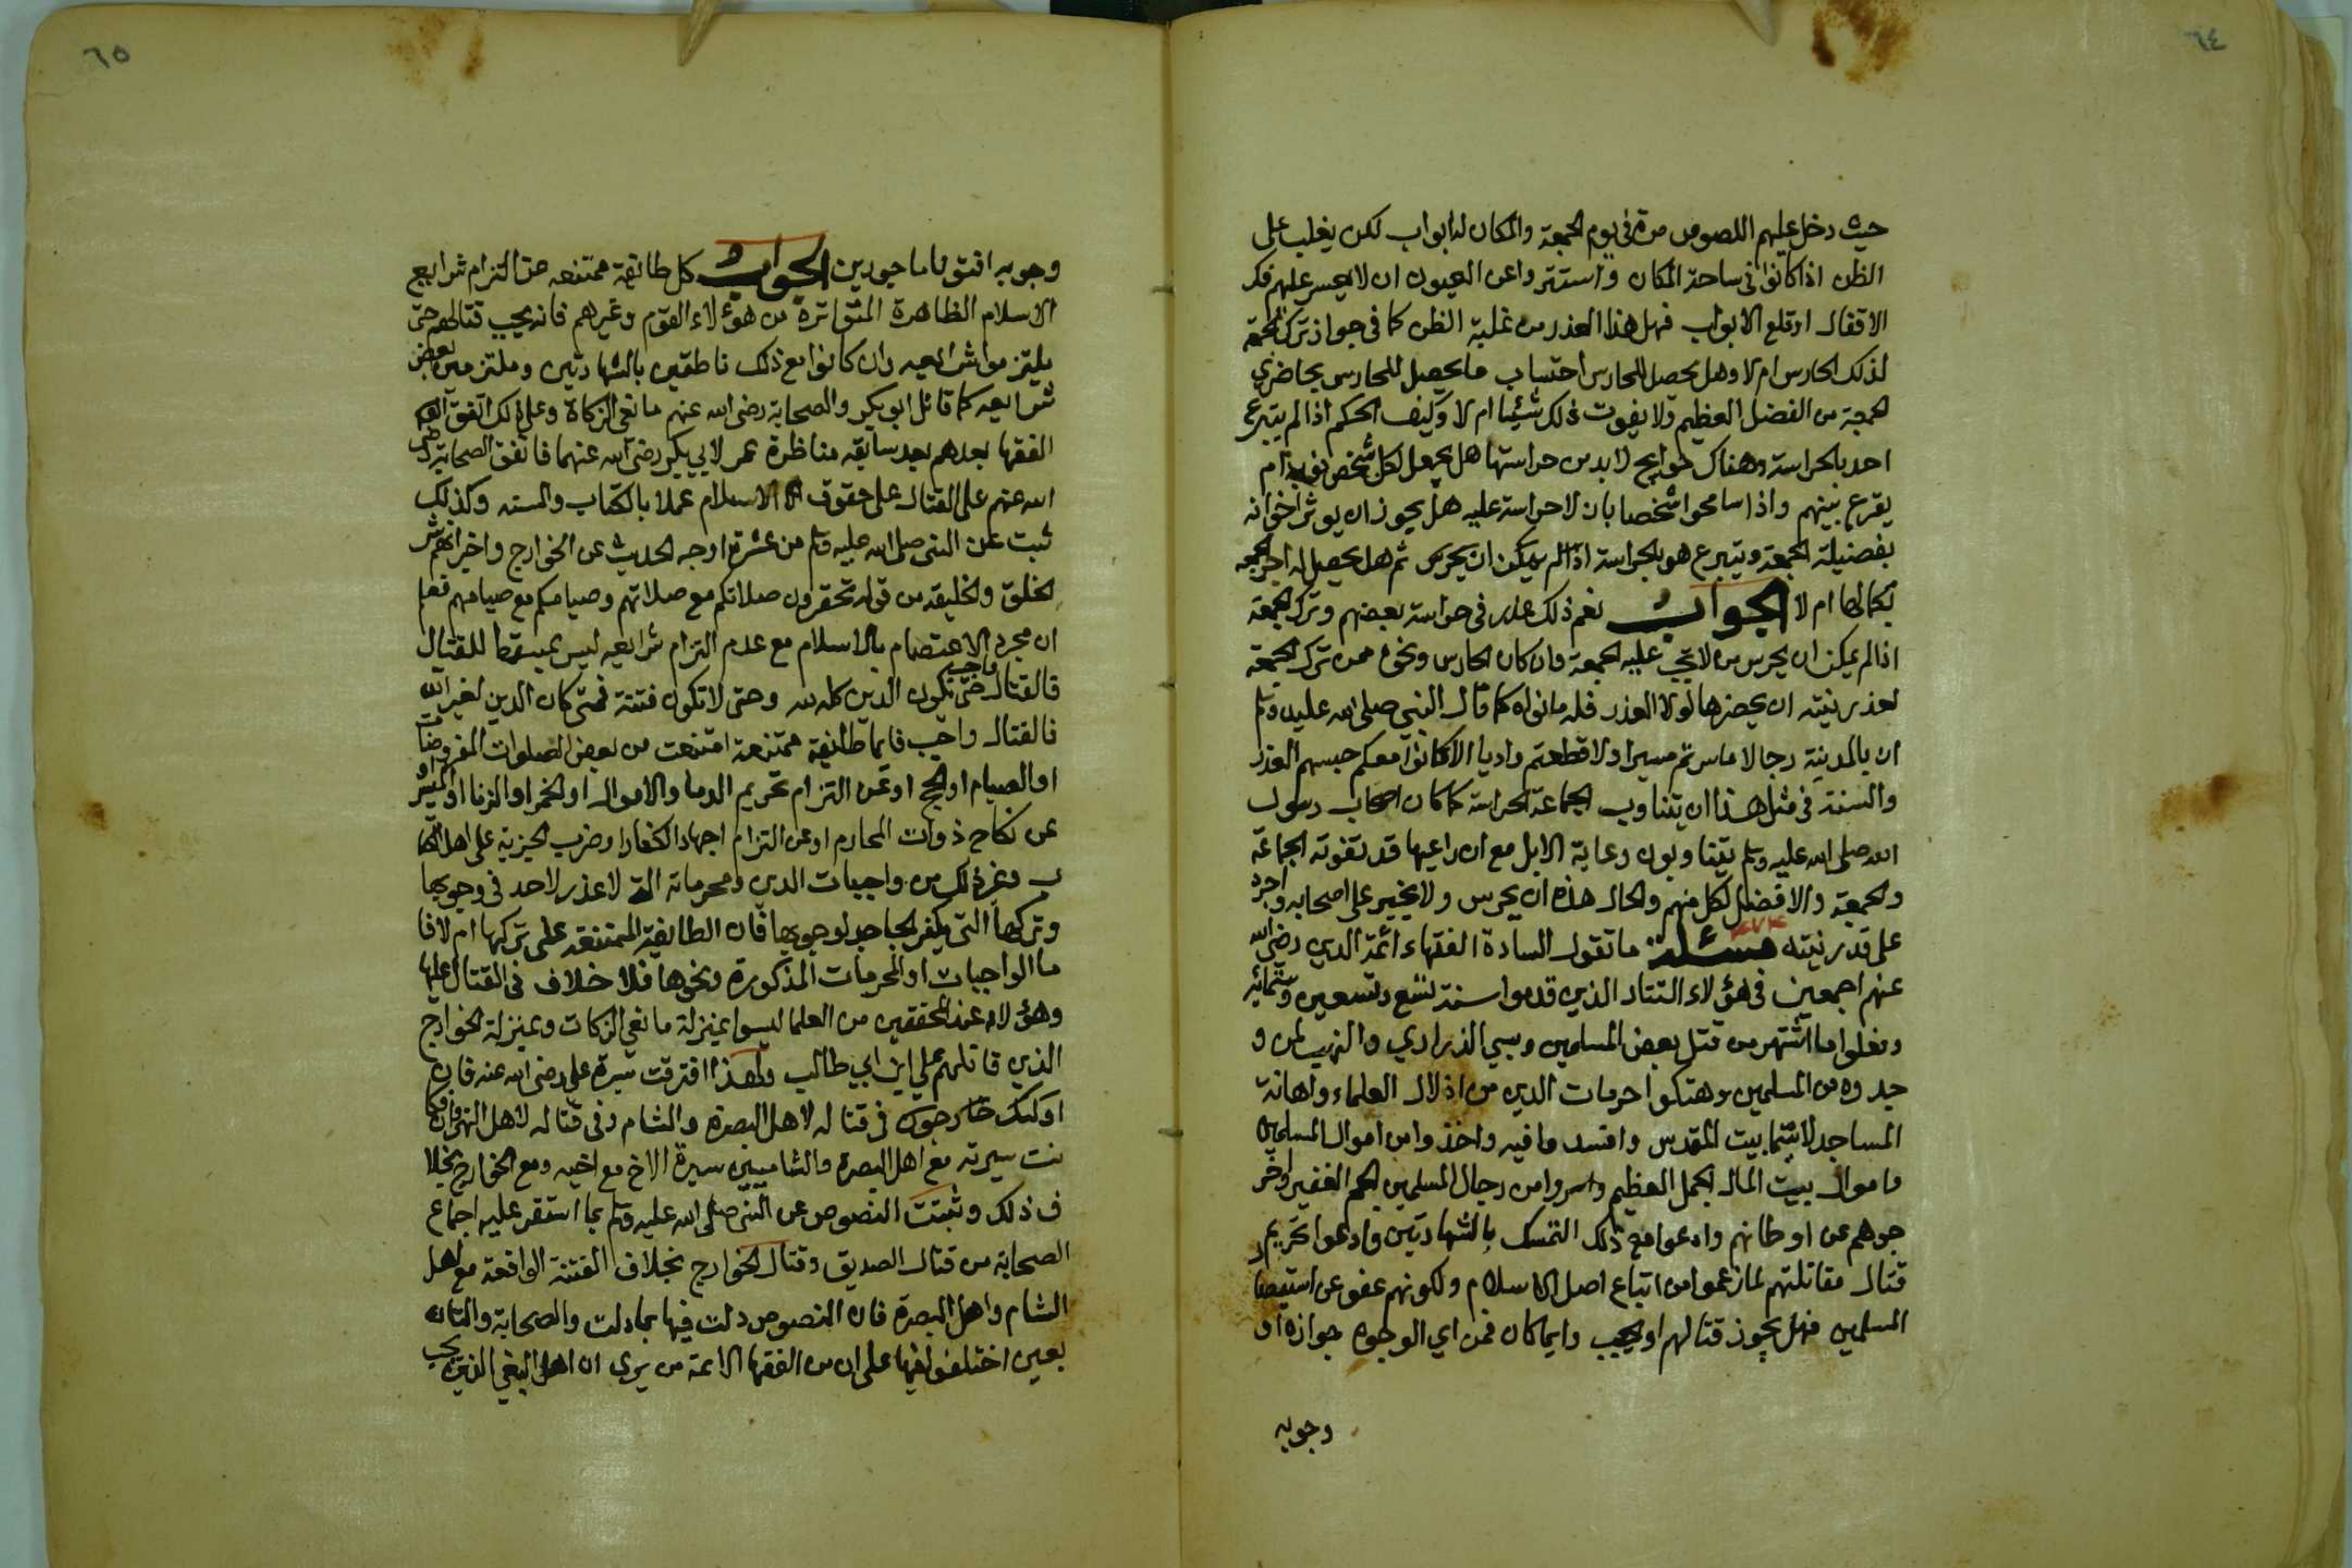 ٦٤
حيث دخل عليهم اللصوص مرة في يوم الجمعة والمكان له ابواب لكن يغلب على
الظن اذا كانوا في ساحة المكان واستتروا عن العيون ان لا يعسر عليهم فك
الاقفال او قلع الابواب فهل هذا العذر من غلبة الظن كاف في جواز ترك الجمعة
لذلك الحارس ام لا وهل يحصل للحارس احتساب ما يحصل للحارس بحاضري
الجمعة من الفضل العظيم ولا يفوت ذلك شيئا ام لا وكيف الحكم اذا لم يتبرع
احد بالحراسة وهناك حوايج لا بد من حراستها هل يجعل لكل شخص نوبة ام
يقرع بينهم واذا سامحوا شخصا بان لا حراسة عليه هل يجوز ان يوثر اخوانه
بفضيلة الجمعة ويتبرع هو بالحراسة اذا لم يمكن ان يحرس ثم هل يحصل له اجر الجمعة
بكمالها ام لا الجواب نعم ذلك عذر في حراسة بعضهم وترك الجمعة
اذا لم يمكن ان يحرس من لا تجب عليه الجمعة وان كان الحارس ونحوه ممن ترك الجمعة
لعذر نيته ان يحضرها لولا العذر فله ما نواه كما قال النبي صلى الله عليه وسلم
ان بالمدينة رجالا ما سرتم مسيرا ولا قطعتم واديا الا كانوا معكم حبسهم العذر
والسنة في مثل هذا ان يتناوب الجماعة الحراسة كما كان اصحاب رسول
الله صلى الله عليه وسلم يتناوبون رعاية الابل مع ان راعيها قد تفوته الجماعة
والجمعة والافضل لكل منهم والحال هذه ان يحرس ولا يخير على اصحابه واجره
على قدر نيته مسئلة ما تقول السادة الفقهاء ائمة الدين رضي الله
عنهم اجمعين في هؤلاء التتار الذين قدموا سنة تسع وتسعين وستمائة
وفعلوا ما اشتهر من قتل بعض المسلمين وسبي الذراري والنهب لمن و
جدوه من المسلمين وهتكوا حرمات الدين من اذلال العلماء واهانة
المساجد لاسيما بيت المقدس وافسد وا فيه واخذوا من اموال المسلمين
واموال بيت المال الجمل العظيم واسروا من رجال المسلمين الجم الغفير واخر
جوهم عن اوطانهم وادعوا مع ذلك التمسك بالشهادتين وادعوا تحريم
قتال مقاتلتهم لما زعموا من اتباع اصل الاسلام ولكونهم عفو عن استيصال
المسلمين فهل يجوز قتالهم او يجب وايما كان فمن اي الوجوه جوازه او
وجوبه
٦٥
وجوبه افتونا ماجورين الجواب كل طائفة ممتنعة عن التزام شرايع
الاسلام الظاهرة المتواترة من هؤلاء القوم وغيرهم فانه يجب قتالهم حتى
يلتزموا شرائعه وان كانوا مع ذلك ناطقين بالشهادتين وملتزمين بعض
شرايعه كما قاتل ابو بكر والصحابة رضي الله عنهم مانعي الزكاة وعلى ذلك اتفق
الفقها بعدهم بعد سابقة مناظرة عمر لابي بكر رضي الله عنهما فاتفق الصحابة رضي
الله عنهم على القتال على حقوق الاسلام عملا بالكتاب والسنة وكذلك
ثبت عن النبي صلى الله عليه وسلم من عشرة اوجه الحديث عن الخوارج واخبر انهم شر
الخلق والخليقة مع قوله تحقرون صلاتكم مع صلاتهم وصيامكم مع صيامهم فعلم
ان مجرد الاعتصام بالاسلام مع عدم التزام شرايعه ليس بمسقط للقتال
فالقتال واجب حتى يكون الدين كله لله وحتى لا تكون فتنة فمتى كان الدين لغير الله
فالقتال واجب فايما طائفة ممتنعة امتنعت من بعض الصلوات المفروضات
او الصيام او الحج او عن التزام تحريم الدما والاموال او الخمر او الزنا او الميسر او
عن نكاح ذوات المحارم او عن التزام اجهاد الكفار او ضرب الجزية على اهل الكتا
ب وغير ذلك من واجبات الدين ومحرماته التي لا عذر لاحد في وجوبها
وتركها التي يكفر الجاحد لوجوبها فان الطائفة الممتنعة على تركها ام لا فا
ما الواجبات او المحرمات المذكورة ونحوها فلا خلاف في القتال عليها
وهؤلاء عند المحققين من العلما ليسوا بمنزلة مانعي الزكات وبمنزلة الخوارج
الذين قاتلهم علي ابن ابي طالب ولهذا افترقت سيرة علي رضي الله عنه فان
اولئك خارجون في قتاله لاهل البصرة والشام وفي قتاله لاهل النهروان فكا
نت سيرته مع اهل البصرة والشاميين سيرة الاخ مع اخيه ومع الخوارج بخلا
ف ذلك وثبتت النصوص عن النبي صلى الله عليه وسلم بما استقر عليه اجماع
الصحابة من قتال الصديق وقتال الخوارج بخلاف الفتنة الواقعة مع اهل
الشام واهل البصرة فان النصوص دلت فيها بما دلت والصحابة والتا
بعين اختلفوا فيها على ان من الفقها الائمة من يرى ان اهل البغي الذين يجب